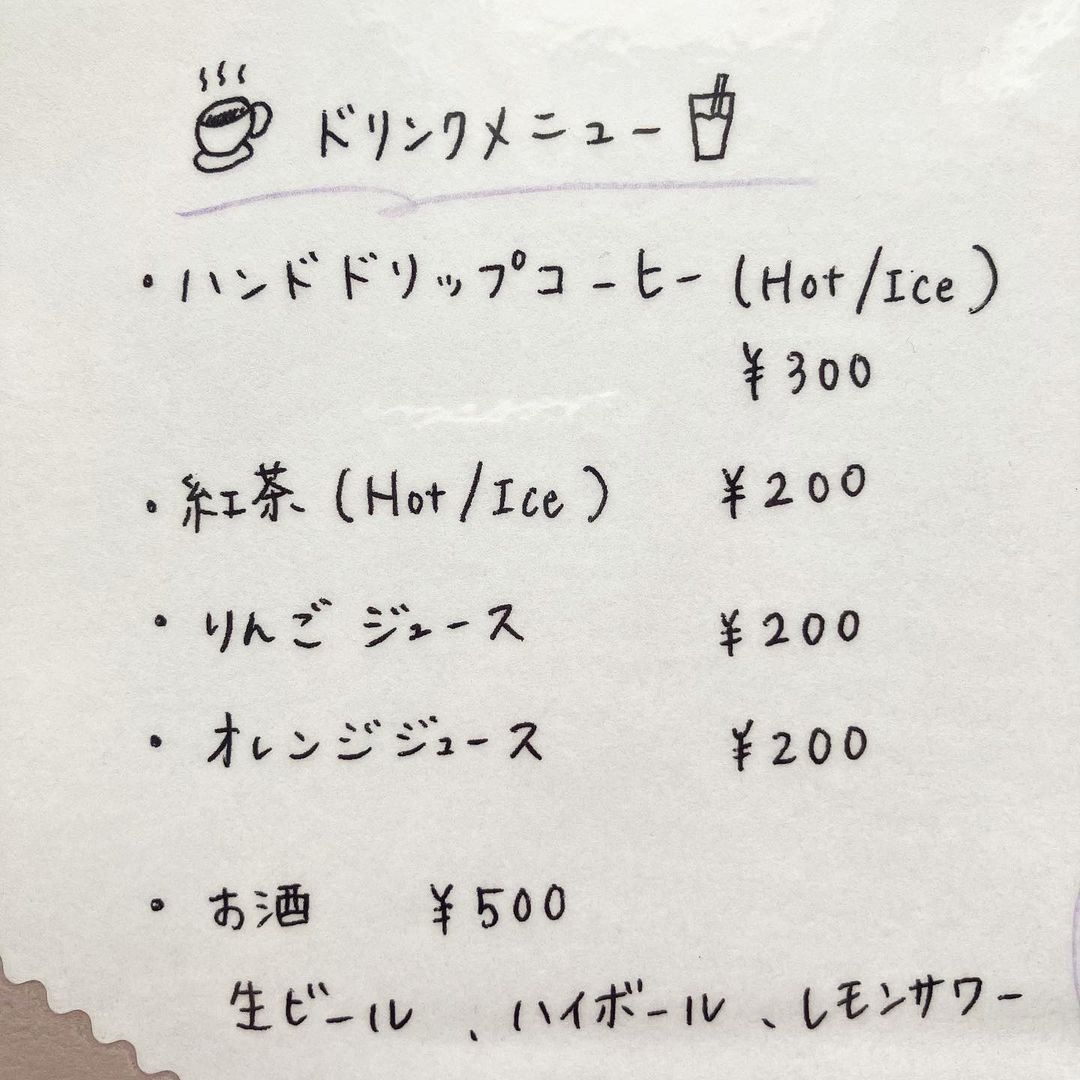 ドリンクメニュー
・ハンドドリップコーヒー(Hot/Ice)
¥300
・紅茶(Hot/Ice) ¥200
・りんごジュース ¥200
・オレンジジュース ¥200
・お酒 ¥500
生ビール、ハイボール、レモンサワー